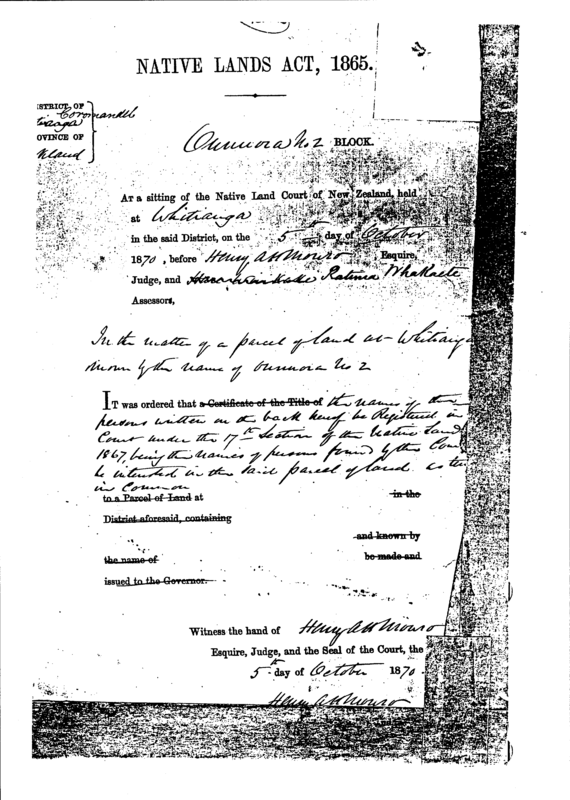 NATIVE LANDS ACT, 1865.
ISTRICT OF
Coromandel
OVINCE OF
kland
Ounuora No 2 BLOCK.
At a sitting of the Native Land Court of New Zealand, held
at Whitianga
in the said District, on the 5th day of October
1870, before Henry A H Monro Esquire,
Judge, and Ratima Whakaete
Assessors,
In the matter of a parcel of land at Whitianga
known by the name of Ounuora No 2
It was ordered that a Certificate of the Title of the names of the
persons written on the back hereof be Registered in
Court under the 17th Section of the Native Land
1867, being the names of persons found by the Cou
be interested in the said parcel of land as te
in Common
to a Parcel of Land at in the
District aforesaid, containing
and known by
the name of be made and
issued to the Governor.
Witness the hand of Henry A H Monro
Esquire, Judge, and the Seal of the Court, the
5th day of October 1870.
Henry A H Monro